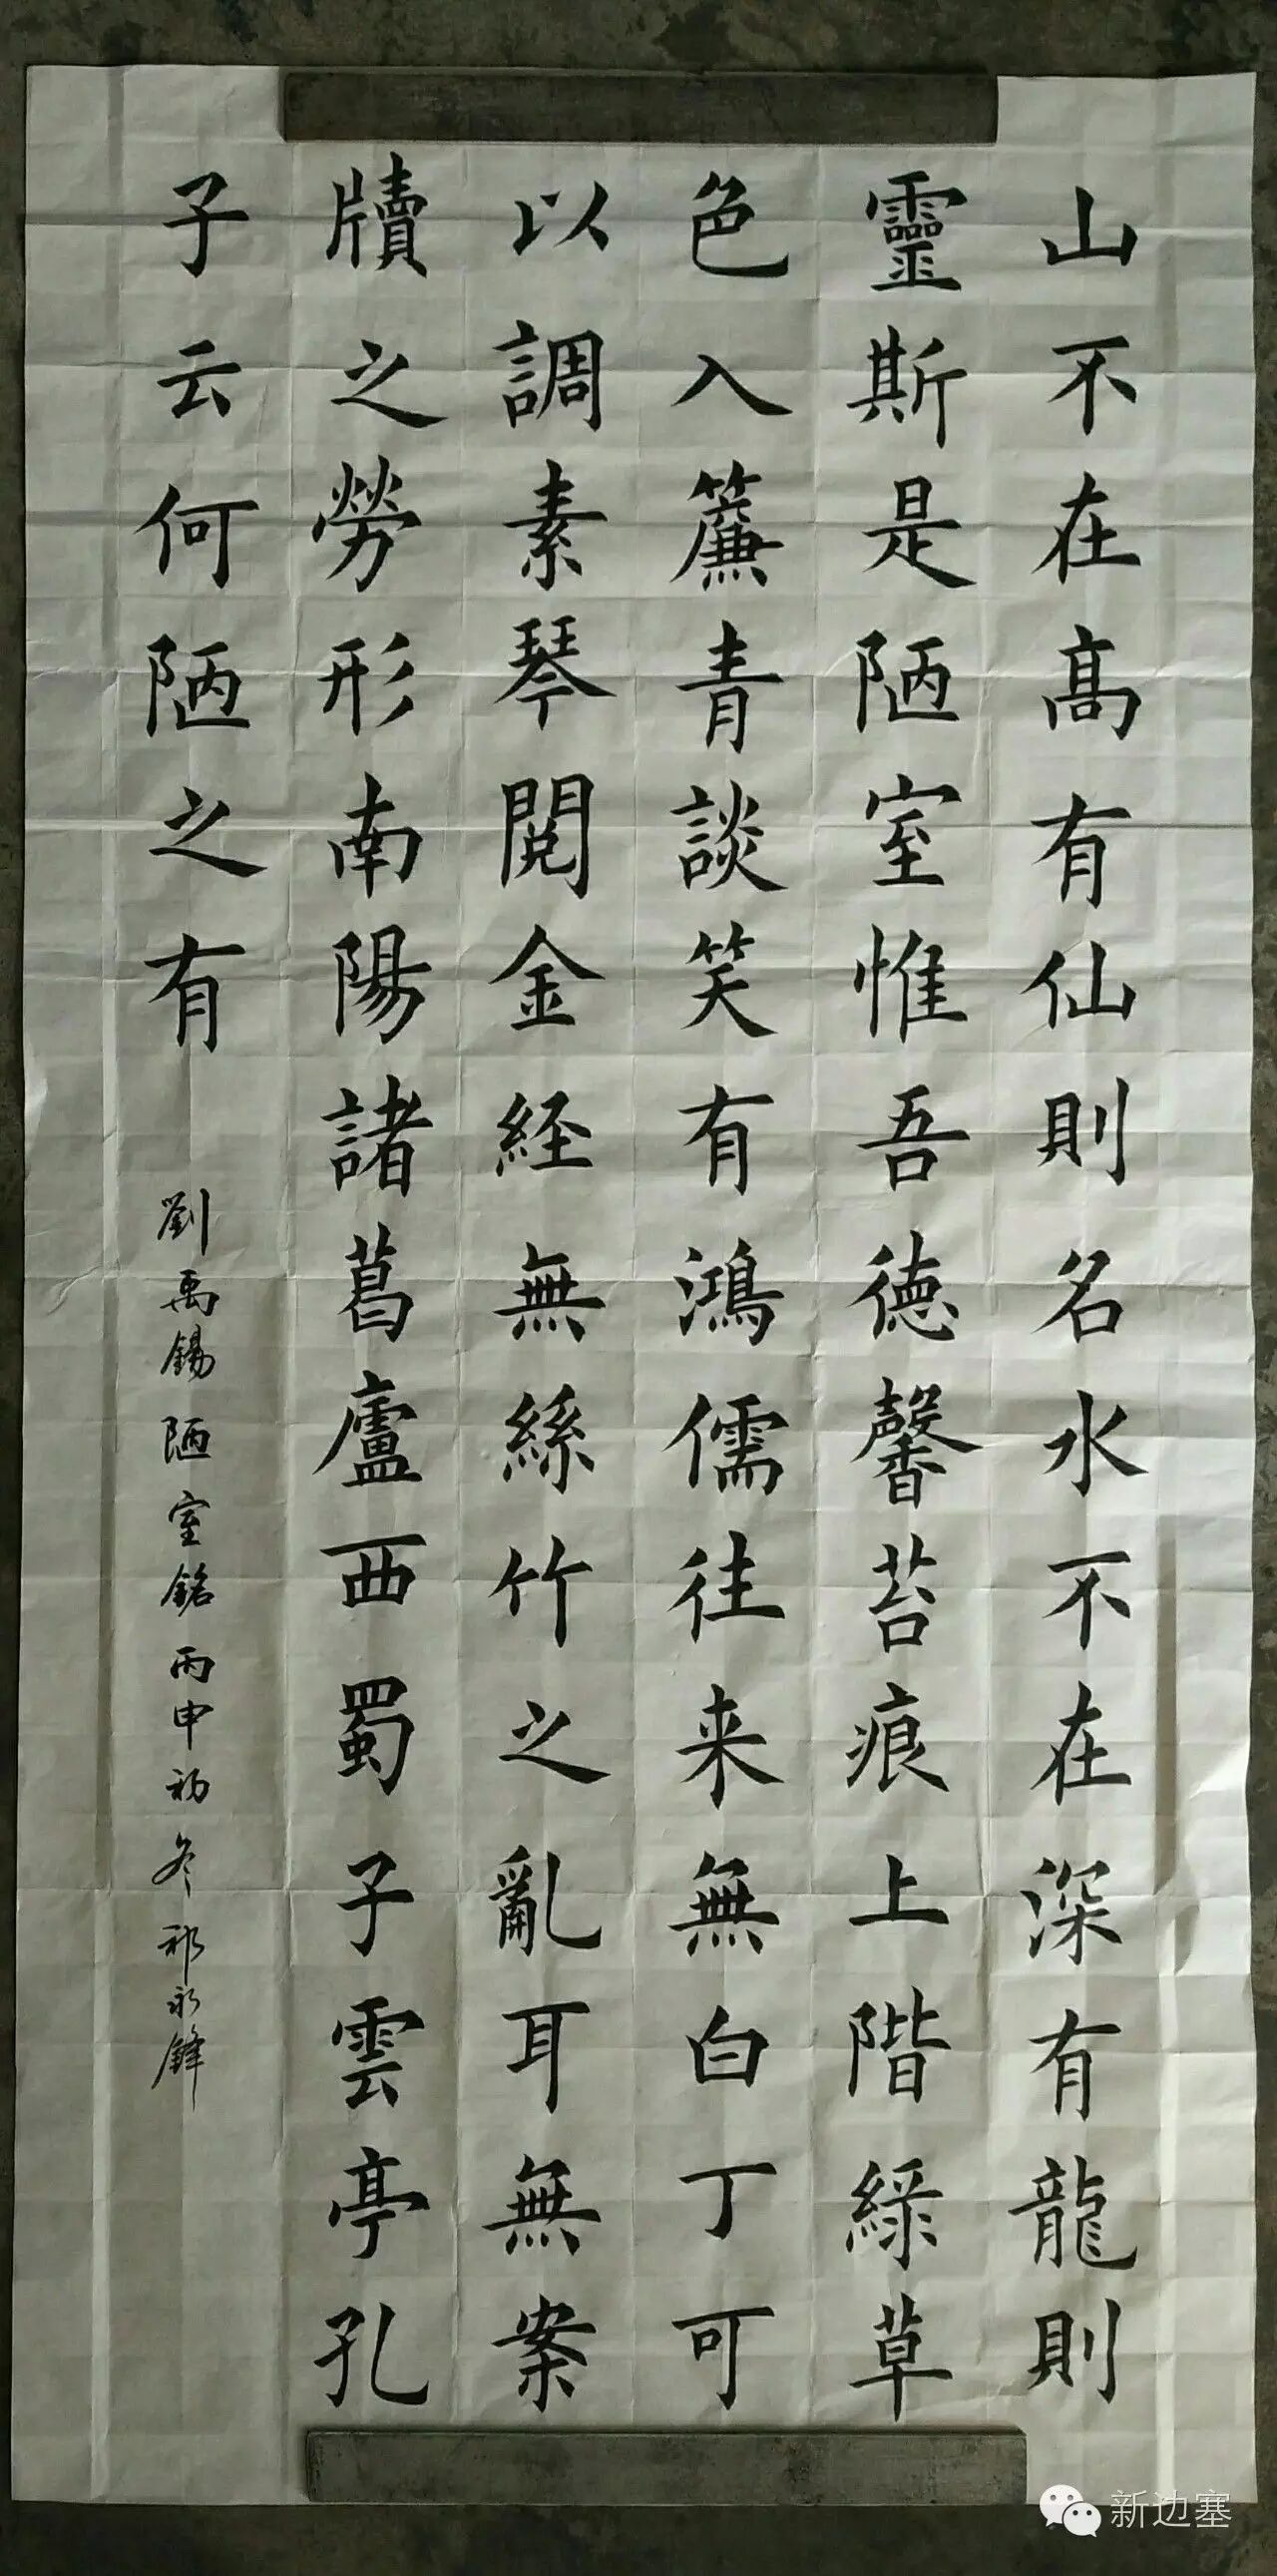 山不在高有仙則名水不在深有龍則
靈斯是陋室惟吾德馨苔痕上階綠草
色入簾青談笑有鴻儒往来無白丁可
以調素琴閱金経無絲竹之亂耳無案
牘之勞形南陽諸葛廬西蜀子雲亭孔
子云何陋之有
劉禹錫陋室銘丙申初冬祁永鋒
新边塞